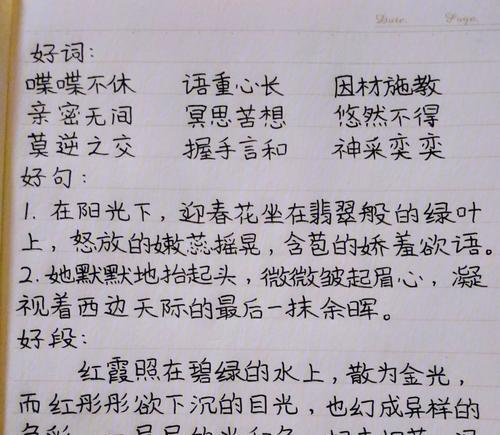 Date. Page.
好词：
喋喋不休 语重心长 因材施教
亲密无间 冥思苦想 悠然不得
莫逆之交 握手言和 神采奕奕
好句：
1. 在阳光下，迎春花坐在翡翠般的绿叶
上，怒放的嫩蕊摇晃，含苞的娇羞欲语。
2. 她默默地抬起头，微微皱起眉心，凝
视着西边天际的最后一抹余晖。
好段：
红霞照在碧绿的水上，散为金光，
而红彤彤欲下沉的目光，也幻成异样的